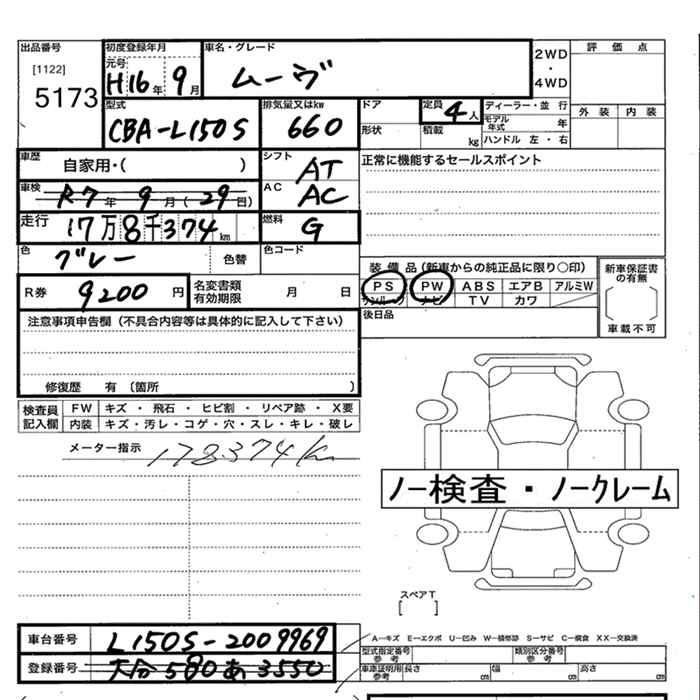 出品番号
[1122]
5173
初度登録年月
元号
H16年 9月
車名・グレード
ムーヴ
2WD
・
4WD
評価点
外装 内装
型式
CBA-L150S
排気量又はkw
660
ドア
形状
定員
4人
積載 kg
ディーラー・並 行
モデル年式 年
ハンドル 左・右
車歴
自家用・( )
シフト
AT
正常に機能するセールスポイント
車検
R7年 9月(29日)
AC
AC
走行
17万8千374km
燃料
G
色
グレー
色替
色コード
R券
9200円
名変書類
有効期限
月 日
装備品(新車からの純正品に限り○印)
PS PW ABS エアB アルミW
サンルーフ ナビ TV カワ
後日品
新車保証書
の有無
車載不可
注意事項申告欄(不具合内容等は具体的に記入して下さい)
修復歴 有 (箇所 )
検査員
記入欄
FW キズ・飛石・ヒビ割・リペア跡・X要
内装 キズ・汚レ・コゲ・穴・スレ・キレ・破レ
メーター指示
178374km
ノー検査・ノークレーム
スペアT
[ ]
車台番号
L150S-2009969
登録番号
大分580あ3550
A―キズ E―エクボ U―凹み W―補修跡 S―サビ C―腐食 XX―交換済
型式指定番号
参考
類別区分番号
参考
車庫証明用
参考
長さ cm 幅 cm 高さ cm